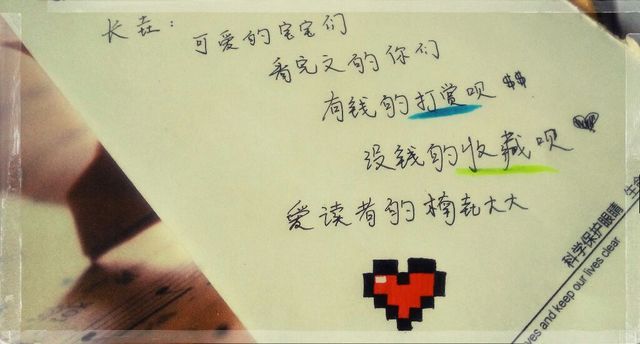 长壵：
可爱的宝宝们
看完文的你们
有钱的打赏呗 $$
没钱的收藏呗
爱读者的楠壵大大
科学保护眼睛
yes and keep our lives clear